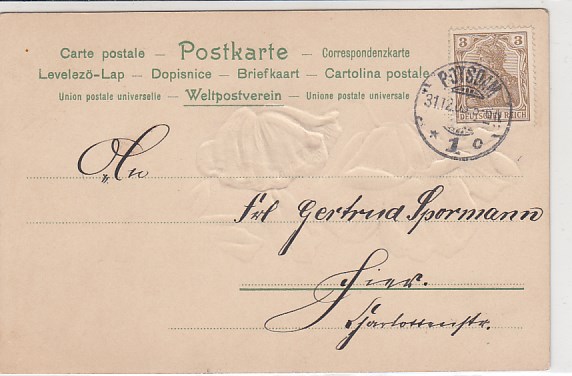 Carte postale – Postkarte – Correspondenzkarte
Levelező-Lap – Dopisnice – Briefkaart – Cartolina postale
Union postale universelle – Weltpostverein – Unione postale universale
3 3
DEUTSCHES REICH
POTSDAM
31.12.
* 1 c
An
Frl Gertrud Spormann
Hier.
Charlottenstr.